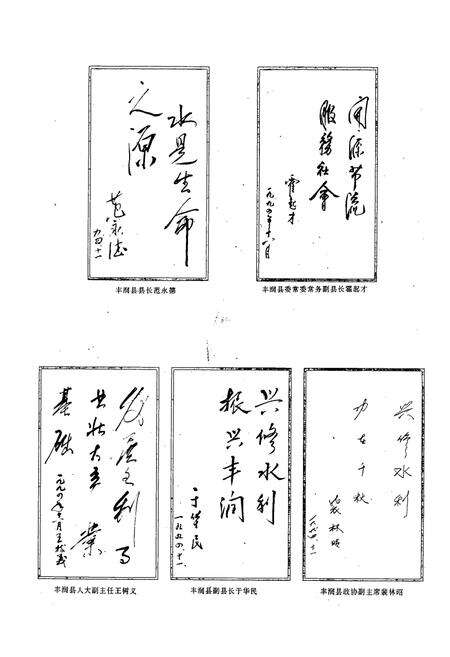 水是生命
之源
范永德
九四·十一
丰润县县长范永德
开源节流
服务社会
霍起才
一九九四年十一月
丰润县委常委常务副县长霍起才
水利
共壮大
业
基础
一九九四年十一月王树义
丰润县人大副主任王树义
兴修水利
振兴丰润
于华民
一九九四·十一
丰润县副县长于华民
兴修水利
功在千秋
裴林昭
一九九四·十一
丰润县政协副主席裴林昭